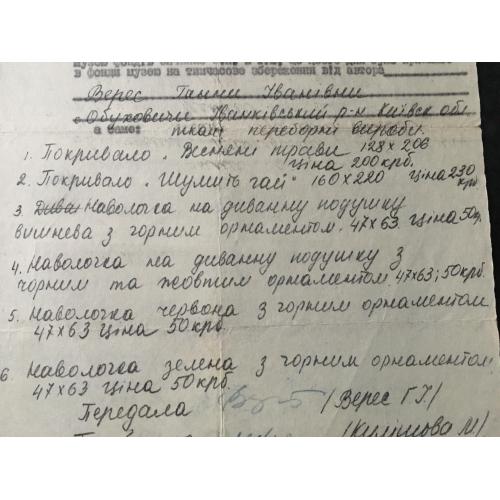 в фонди музею на тимчасове збереження від автора
Верес Ганни Іванівни
с. Обуховичи Іванківський р-н Київск обл
а саме: ткані переборні вироби.
1. Покривало „Весняні трави" 128х206
ціна 200 крб.
2. Покривало „Шумить гай" 160х220 ціна 230
крб
3. Дива Наволочка на диванну подушку
вишнева з чорним орнаментом. 47х63 ціна 50кр.
4. Наволочка на диванну подушку з
чорним та жовтим орнаментом 47х63; 50крб.
5. Наволочка червона з чорним орнаментом
47х63 ціна 50крб.
6. Наволочка зелена з чорним орнаментом
47х63 ціна 50крб.
Передала /Верес Г.І/